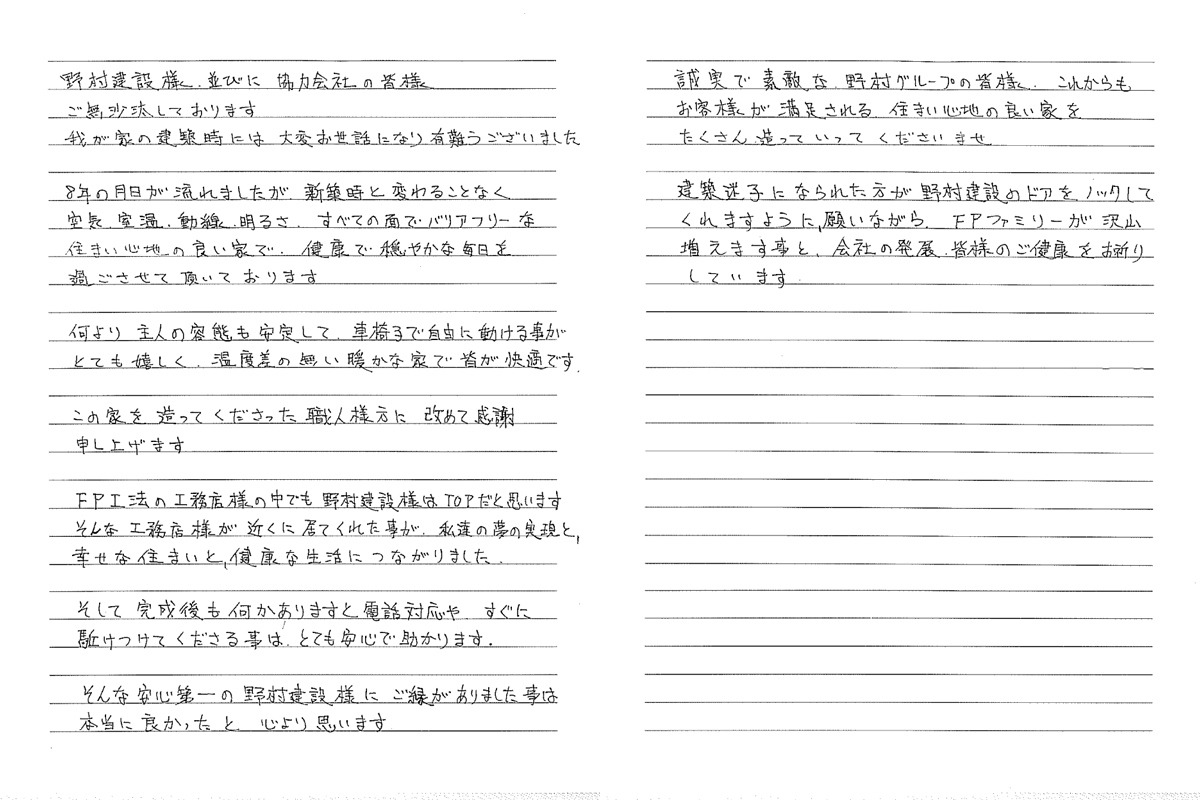 野村建設様.並びに 協力会社の皆様
ご無沙汰しております
我が家の建築時には 大変お世話になり有難うございました
8年の月日が流れましたが.新築時と変わることなく
空気.室温.動線.明るさ.すべての面でバリアフリーな
住まい心地の良い家で.健康で穏やかな毎日を
過ごさせて頂いております
何より 主人の容態も安定して.車椅子で自由に動ける事が
とても嬉しく.温度差の無い暖かな家で皆が快適です.
この家を造ってくださった職人様方に 改めて感謝
申し上げます
FP工法の工務店様の中でも 野村建設様はTOPだと思います
そんな工務店様が近くに居てくれた事が.私達の夢の実現と,
幸せな住まいと,健康な生活につながりました.
そして 完成後も何かありますと電話対応や すぐに
駈けつけてくださる事は.とても安心で助かります.
そんな安心第一の野村建設様に ご縁がありました事は
本当に良かったと 心より思います
誠実で素敵な.野村グループの皆様.これからも
お客様が満足される 住まい心地の良い家を
たくさん造っていってくださいませ
建築迷子になられた方が野村建設のドアをノックして
くれますように,願いながら.FPファミリーが沢山
増えます事と、会社の発展.皆様のご健康をお祈り
しています.